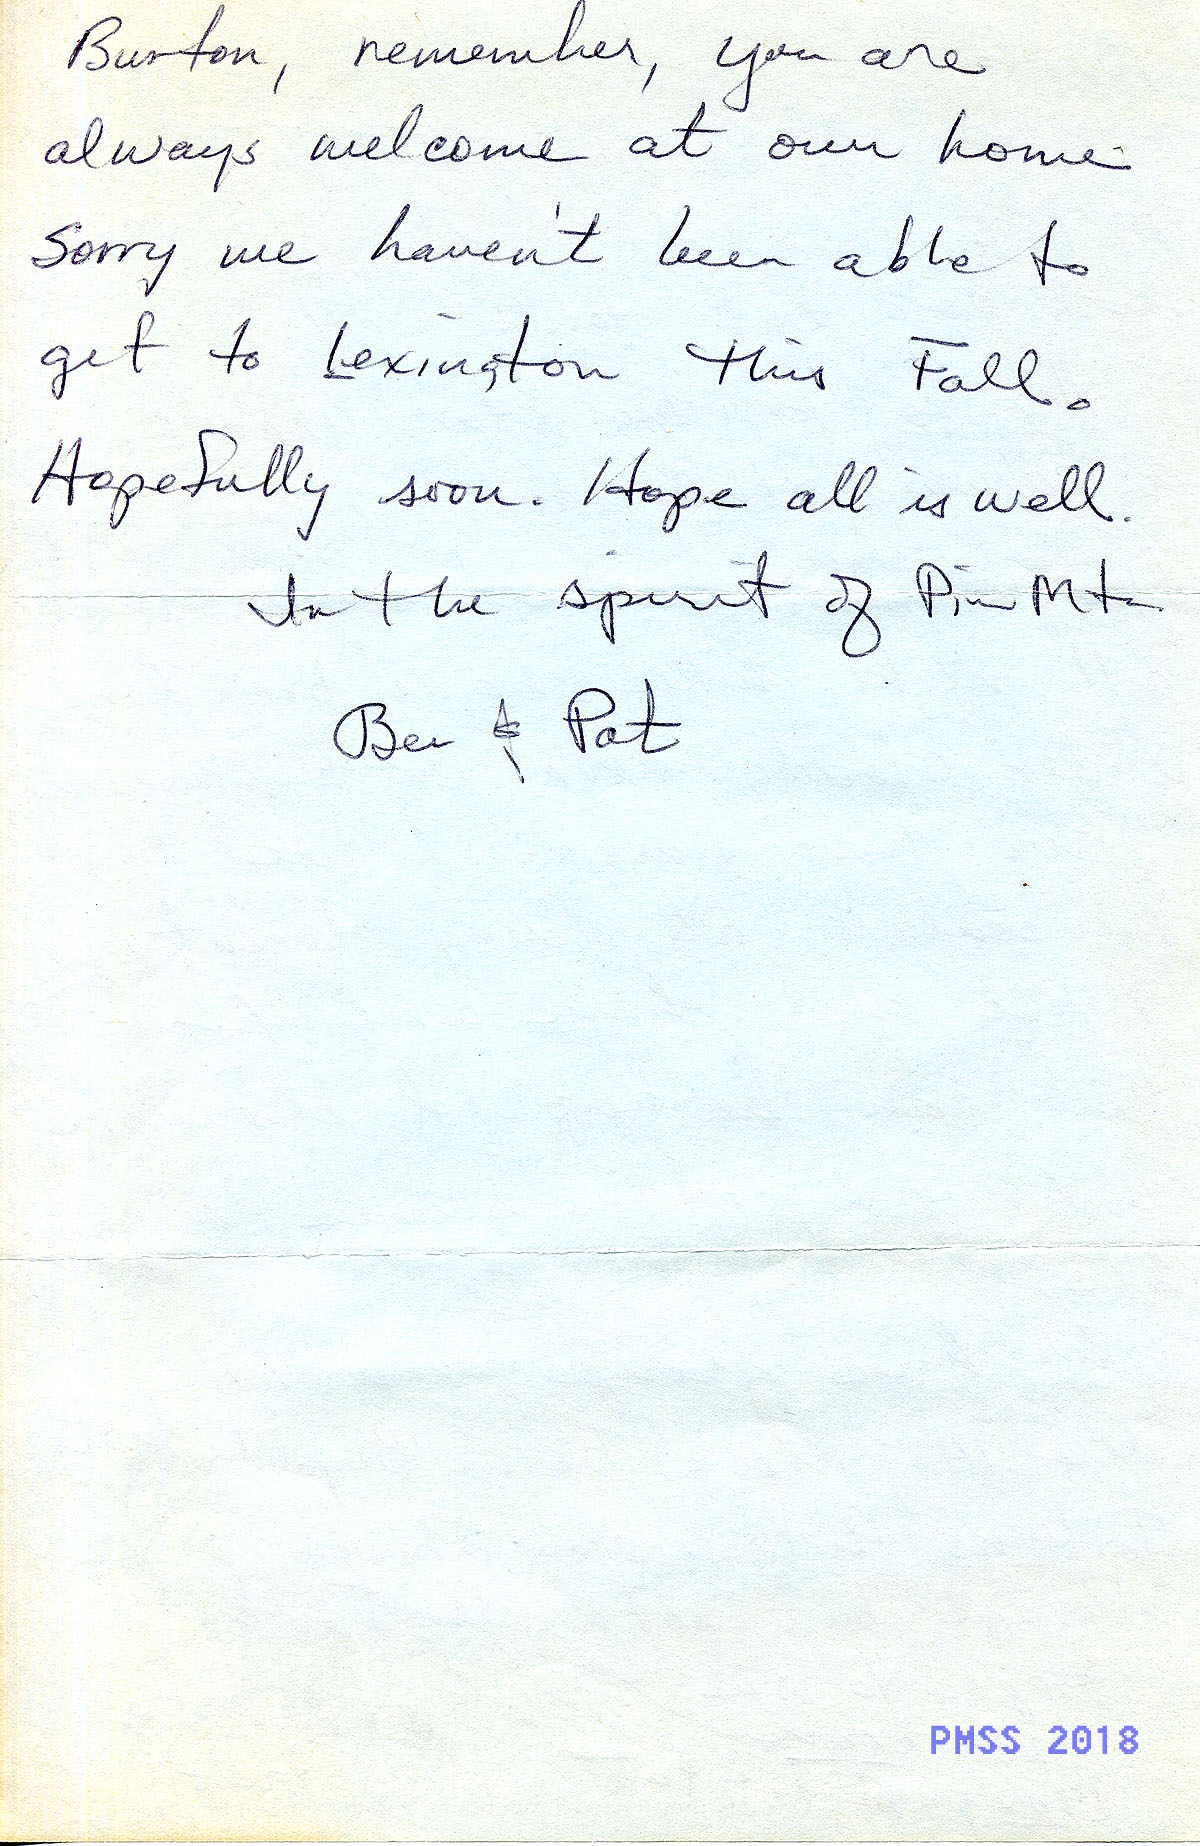 Burton, remember, you are
always welcome at our home
Sorry we haven't been able to
get to Lexington this Fall.
Hopefully soon. Hope all is well.
In the spirit of Pine Mtn
Ben & Pat
PMSS 2018